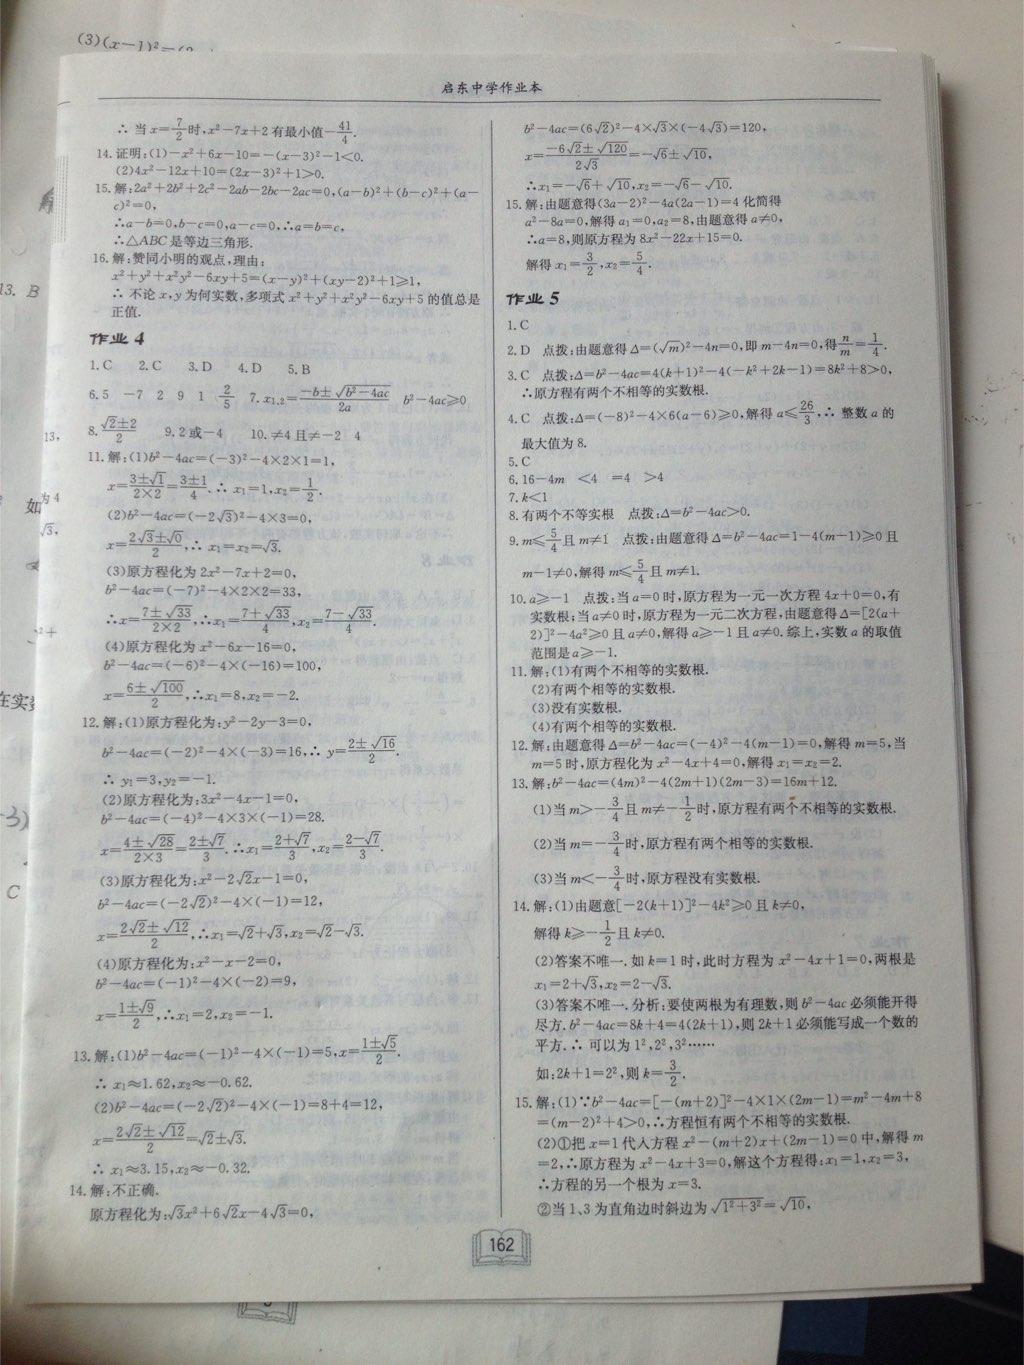 (3)(x-1)²=(2
启东中学作业本
∴ 当x=7/2时,x²-7x+2有最小值-41/4.
14.证明:(1)-x²+6x-10=-(x-3)²-1<0.
(2)4x²-12x+10=(2x-3)²+1>0.
15.解:2a²+2b²+2c²-2ab-2bc-2ac=0,(a-b)²+(b-c)²+(a-
c)²=0,
∴a-b=0,b-c=0,a-c=0,∴a=b=c,
∴△ABC是等边三角形.
16.解:赞同小明的观点,理由:
x²+y²+x²y²-6xy+5=(x-y)²+(xy-2)²+1≥1,
∴ 不论x,y为何实数,多项式x²+y²+x²y²-6xy+5的值总是
正值.
作业4
1.C 2.C 3.D 4.D 5.B
6.5 -7 2 9 1 2/5 7.x₁,₂=(-b±√(b²-4ac))/2a b²-4ac≥0
8.(√2±2)/2 9.2或-4 10.≠4且≠-2 4
11.解:(1)b²-4ac=(-3)²-4×2×1=1,
x=(3±√1)/(2×2)=(3±1)/4.∴ x₁=1,x₂=1/2.
(2)b²-4ac=(-2√3)²-4×3=0,
x=(2√3±√0)/2,∴ x₁=x₂=√3.
(3)原方程化为2x²-7x+2=0,
b²-4ac=(-7)²-4×2×2=33,
∴x=(7±√33)/(2×2),∴x₁=(7+√33)/4,x₂=(7-√33)/4.
(4)原方程化为x²-6x-16=0,
b²-4ac=(-6)²-4×(-16)=100,
x=(6±√100)/2,∴x₁=8,x₂=-2.
12.解:(1)原方程化为:y²-2y-3=0,
b²-4ac=(-2)²-4×(-3)=16,∴ y=(2±√16)/2.
∴ y₁=3,y₂=-1.
(2)原方程化为:3x²-4x-1=0,
b²-4ac=(-4)²-4×3×(-1)=28.
x=(4±√28)/(2×3)=(2±√7)/3.∴x₁=(2+√7)/3,x₂=(2-√7)/3.
(3)原方程化为:x²-2√2x-1=0,
b²-4ac=(-2√2)²-4×(-1)=12,
x=(2√2±√12)/2,∴x₁=√2+√3,x₂=√2-√3.
(4)原方程化为:x²-x-2=0,
b²-4ac=(-1)²-4×(-2)=9,
x=(1±√9)/2,∴x₁=2,x₂=-1.
13.解:(1)b²-4ac=(-1)²-4×(-1)=5,x=(1±√5)/2.
∴ x₁≈1.62,x₂≈-0.62.
(2)b²-4ac=(-2√2)²-4×(-1)=8+4=12,
x=(2√2±√12)/2=√2±√3.
∴ x₁≈3.15,x₂≈-0.32.
14.解:不正确.
原方程化为:√3x²+6√2x-4√3=0,
b²-4ac=(6√2)²-4×√3×(-4√3)=120,
x=(-6√2±√120)/2√3=-√6±√10,
∴x₁=-√6+√10,x₂=-√6-√10.
15.解:由题意得(3a-2)²-4a(2a-1)=4化简得
a²-8a=0,解得a₁=0,a₂=8,由题意得a≠0,
∴a=8,则原方程为8x²-22x+15=0.
解得x₁=3/2,x₂=5/4.
作业5
1.C
2.D 点拨:由题意得Δ=(√m)²-4n=0,即m-4n=0,得n/m=1/4.
3.C 点拨:Δ=b²-4ac=4(k+1)²-4(-k²+2k-1)=8k²+8>0,
∴原方程有两个不相等的实数根.
4.C 点拨:Δ=(-8)²-4×6(a-6)≥0,解得a≤26/3,∴ 整数a的
最大值为8.
5.C
6.16-4m <4 =4 >4
7.k<1
8.有两个不等实根 点拨:Δ=b²-4ac>0.
9.m≤5/4且m≠1 点拨:由题意得Δ=b²-4ac=1-4(m-1)≥0且
m-1≠0,解得m≤5/4且m≠1.
10.a≥-1 点拨:当a=0时,原方程为一元一次方程4x+0=0,有
实数根;当a≠0时,原方程为一元二次方程,由题意得Δ=[2(a+
2)]²-4a²≥0且a≠0,解得a≥-1且a≠0.综上,实数a的取值
范围是a≥-1.
11.解:(1)有两个不相等的实数根.
(2)有两个相等的实数根.
(3)没有实数根.
(4)有两个相等的实数根.
12.解:由题意得Δ=b²-4ac=(-4)²-4(m-1)=0,解得m=5,当
m=5时,原方程化为x²-4x+4=0,解得x₁=x₂=2.
13.解:b²-4ac=(4m)²-4(2m+1)(2m-3)=16m+12.
(1)当m>-3/4且m≠-1/2时,原方程有两个不相等的实数根.
(2)当m=-3/4时,原方程有两个相等的实数根.
(3)当m<-3/4时,原方程没有实数根.
14.解:(1)由题意[-2(k+1)]²-4k²≥0且k≠0,
解得k≥-1/2且k≠0.
(2)答案不唯一.如k=1时,此时方程为x²-4x+1=0,两根是
x₁=2+√3,x₂=2-√3.
(3)答案不唯一.分析:要使两根为有理数,则b²-4ac必须能开得
尽方.b²-4ac=8k+4=4(2k+1),则2k+1必须能写成一个数的
平方.∴ 可以为1²,2²,3²……
如:2k+1=2²,则k=3/2.
15.解:(1)∵b²-4ac=[-(m+2)]²-4×1×(2m-1)=m²-4m+8
=(m-2)²+4>0,∴方程恒有两个不相等的实数根.
(2)①把x=1代入方程x²-(m+2)x+(2m-1)=0中,解得m
=2,∴原方程为x²-4x+3=0,解这个方程得:x₁=1,x₂=3,
∴方程的另一个根为x=3.
②当1、3为直角边时斜边为√(1²+3²)=√10,
162
13. B
13,
如
为4
√3,
在实
-3)
C